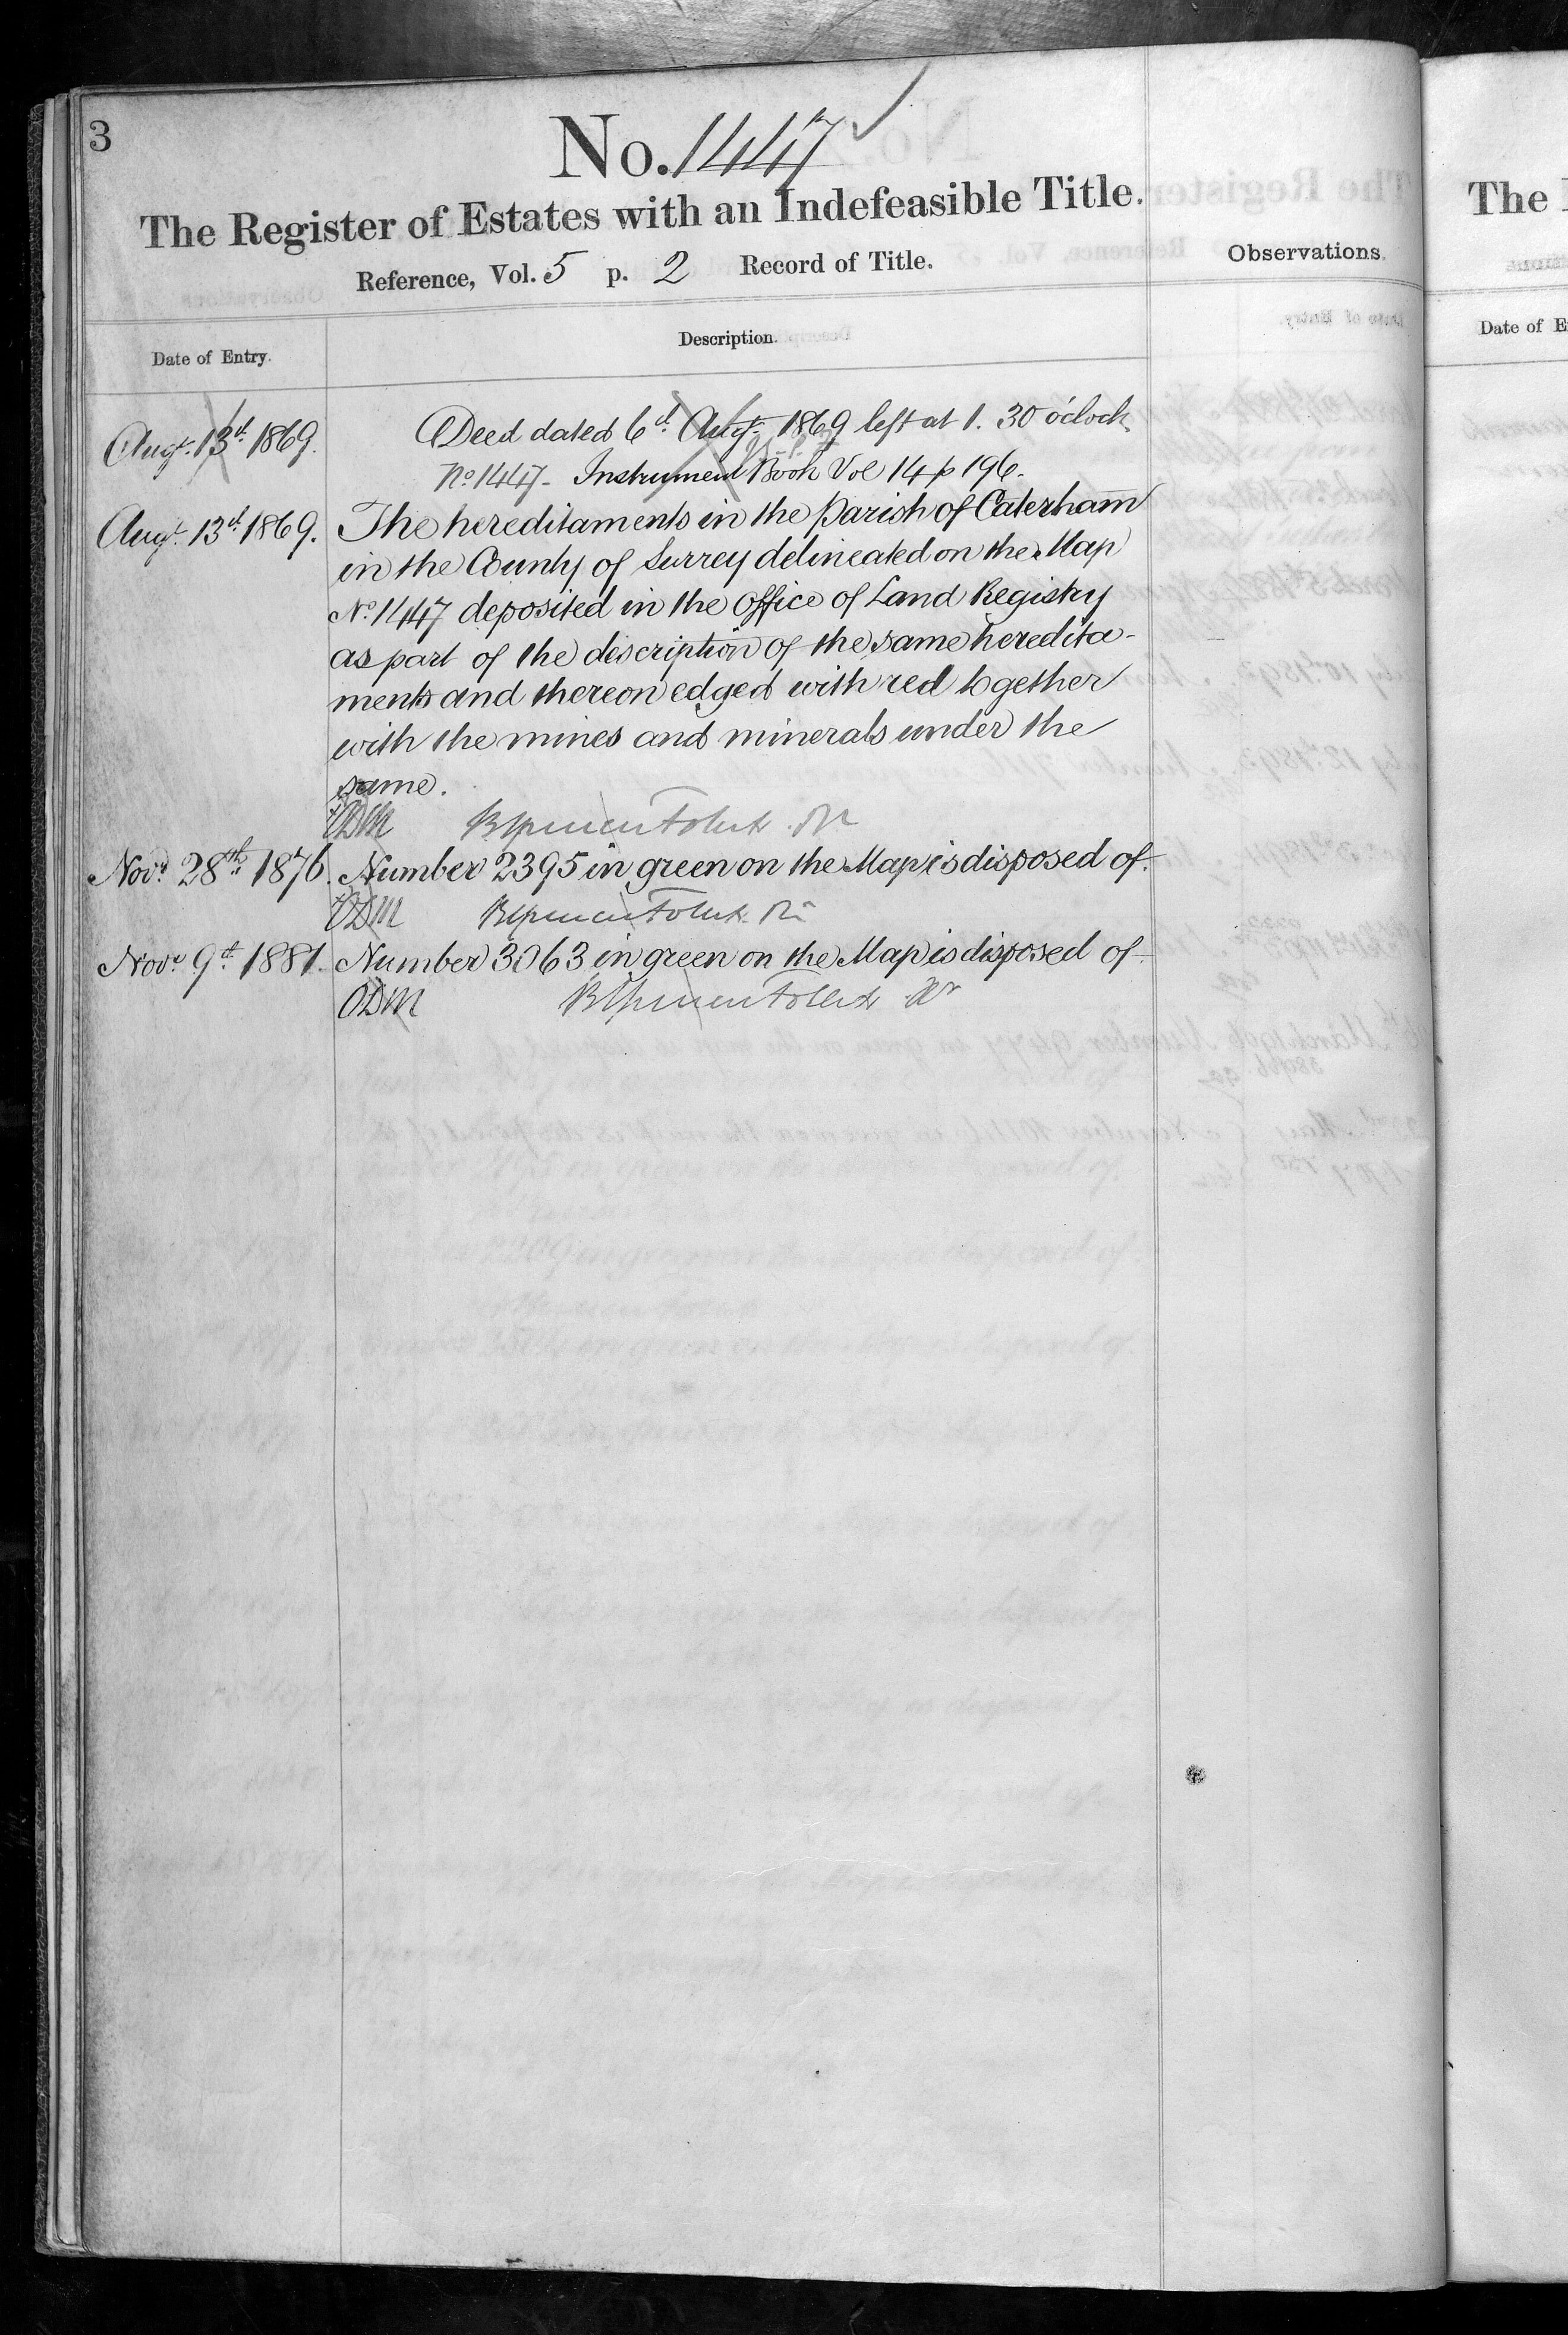 3
No. 1447
The Register of Estates with an Indefeasible Title.
Reference, Vol. 5 p. 2 Record of Title.
Observations.
Date of Entry.
Description.
Augt. 13th 1869.
Deed dated 6th Augt. 1869 left at 1.30 o'clock.
No. 1447 - Instrument Book Vol 14 p 196.
Augt. 13th 1869. The hereditaments in the Parish of Caterham
in the County of Surrey delineated on the Map
No. 1447 deposited in the office of Land Registry
as part of the description of the same heredita-
ments and thereon edged with red together
with the mines and minerals under the
same.
ODM
Novr. 28th 1876. Number 2395 in green on the Map is disposed of.
ODM
Novr. 9th 1881. Number 3063 in green on the Map is disposed of.
ODM
The
Date of E